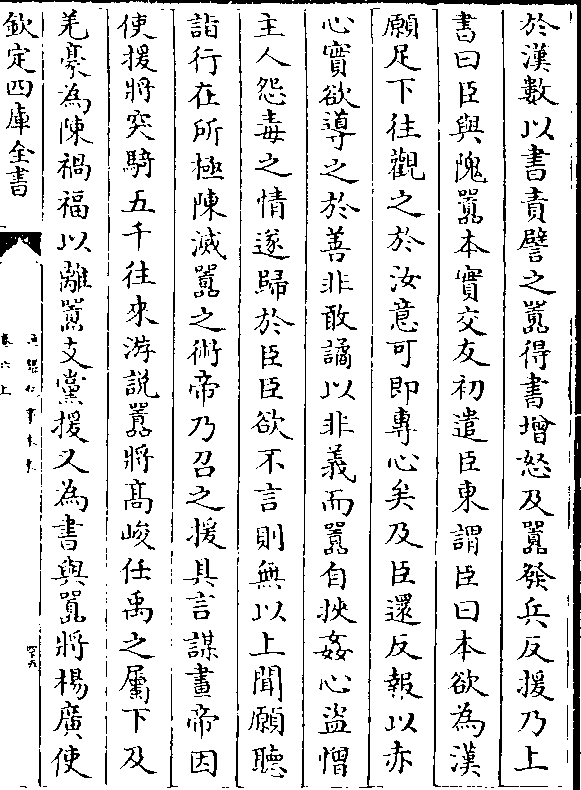 於漢數以書責譬之囂得書增怒及囂發兵反援乃上
書曰臣與隗囂本實交友初遣臣東謂臣曰本欲為漢
願足下往觀之於汝意可即專心矣及臣還反報以赤
心實欲導之於善非敢譎以非義而囂自挾姦心盜憎
主人怨毒之情遂歸於臣臣欲不言則無以上聞願聽
詣行在所極陳滅囂之術帝乃召之援具言謀畫帝因
使援將突騎五千往來游説囂將高峻任禹之屬下及
羌豪為陳禍福以離囂支黨援又為書與囂將楊廣使
欽定四庫全書
卷六上